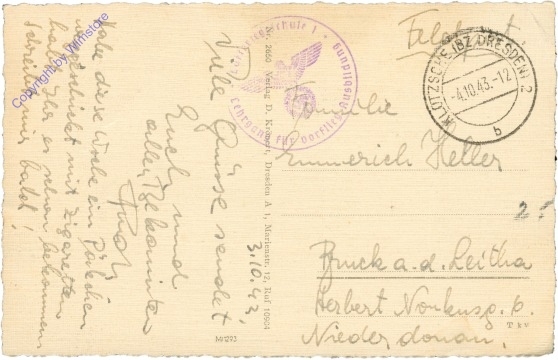 Habe diese Woche ein Päckchen
weggeschickt mit Zigaretten
habt Ihr es schon bekommen
schreibt mir bald!
Viele Grüsse sendet
Euch und
allen Bekannten
Rudi
3.10.43
Nr. 2650 Verlag D. Dresden A 1, Marienstr. 12, Ruf 18904
MW1293
Luftkriegsschule 1
Lehrgang für vorflieg. Ausbildung
Feldpost!
KLOTZSCHE (BZ DRESDEN) 2
-4.10.43.-12
b
Familie
Emmerich Heller
Bruck a.d. Leitha
Herbert
Niederdonau.
Copyright by Wimstore